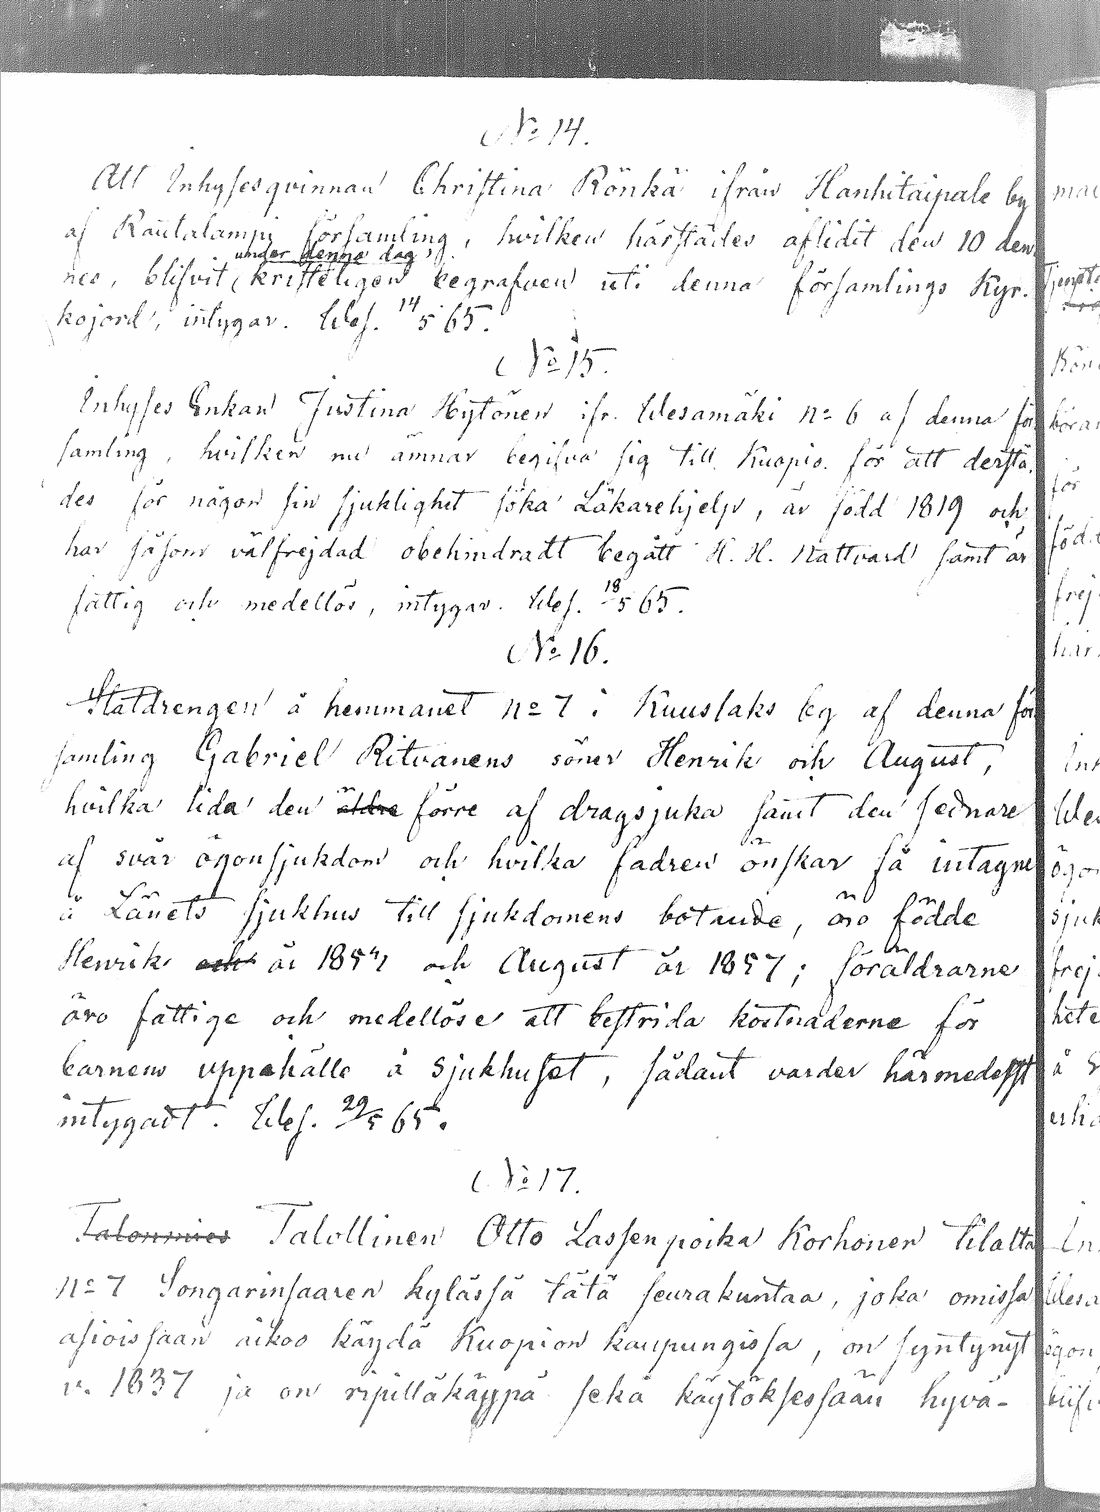 No 14.
Att Inhysesqvinnan Christina Rönkä ifrån Hanhitaipale by
af Rautalampi församling, hvilken härstädes aflidit den 10 den-
under denna dag
nes, blifvit kristeligen begrafven uti denna församlings Kyr-
kojord, intygar. Wes. 14/5 65.
No 15.
Inhyses Enkan Justina Hytönen ifr. Wesamäki no 6 af denna för-
samling, hvilken nu ämnar begifva sig till Kuopio för att derstä-
des för någon sin sjuklighet söka Läkarehjelp, är född 1819 och
har såsom välfrejdad obehindradt begått H. H. Nattvard samt är
fattig och medellös, intygar. Wes. 18/5 65.
No 16.
Statdrengen å hemmanet no 7 i Kuuslaks by af denna för-
samling Gabriel Ritvanens söner Henrik och August,
hvilka lida den äldre förre af dragsjuka samt den sednare
af svår ögonsjukdom och hvilka fadren önskar få intagne
å Länets sjukhus till sjukdomens botande, äro födde
Henrik och år 1854 och August år 1857; föräldrarne
äro fattige och medellöse att bestrida kostnaderne för
barnens uppehälle å sjukhuset, sådant varder härmedelst
intygadt. Wes. 29/5 65.
No 17.
Talonmies Talollinen Otto Lassenpoika Korhonen tilalta
no 7 Songarinsaaren kylässä tätä seurakuntaa, joka omissa
asioissaan aikoo käydä Kuopion kaupungissa, on syntynyt
v. 1837 ja on ripilläkäypä sekä käytöksessään hyvä-